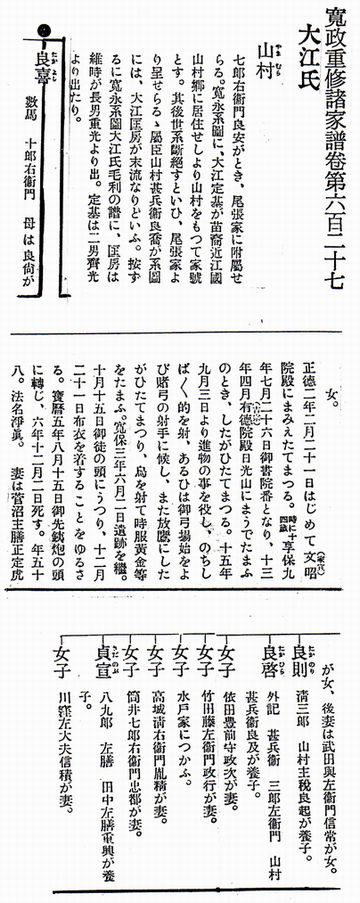 寬政重修諸家譜卷第六百二十七
大江氏
山村
やまむら
七郎右衞門良安がとき、尾張家に附屬せ
らる。寬永系圖に、大江定基が苗裔近江國
山村鄕に居住せしより山村をもつて家號
とす。其後世系斷絕すといひ、尾張家よ
り呈せらるゝ屬臣山村甚兵衞良喬が系圖
には、大江匡房が末流なりといふ。按ず
るに寬永系圖大江氏毛利の譜に、匡房は
維時が長男重光より出、定基は二男齊光
より出たり。
良喜
數馬 十郎右衞門 母は良尙が
女。
正德二年二月二十一日はじめて文昭
(家宣)
院殿にまみえたてまつる。時に十四歲 享保九
年七月二十六日御書院番となり、十三
年四月有德院殿日光山にまうでたまふ
(吉宗)
のとき、したがひたてまつる。十五年
九月三日より進物の事を役し、のちし
ば〱的を射、あるひは御弓場始をよ
び賭弓の射手に候し、また放鷹にした
がひたてまつり、鳥を射て時服黃金等
をたまふ。寬保三年六月二日遺跡を繼。
十月十五日御徒の頭にうつり、十二月
二十一日布衣を着することをゆるさ
る。寶曆五年八月十五日御先鐵炮の頭
に轉じ、六年十二月二日死す。年五十
八。法名淨眞。 妻は菅沼主膳正定虎
が女、後妻は武田與左衞門信常が女。
良則
よしのり
淸三郎 山村主稅良起が養子。
良啓
よしひら
外記 甚兵衞 三郎左衞門 山村
甚兵衞良及が養子。
女子
依田豐前守政次が妻。
女子
竹田藤左衞門政行が妻。
女子
水戶家につかふ。
女子
高城淸右衞門胤精が妻。
女子
筒井七郎右衞門忠都が妻。
貞宣
さだのぶ
八九郎 左膳 田中左膳重興が養
子。
女子
川窪左大夫信積が妻。